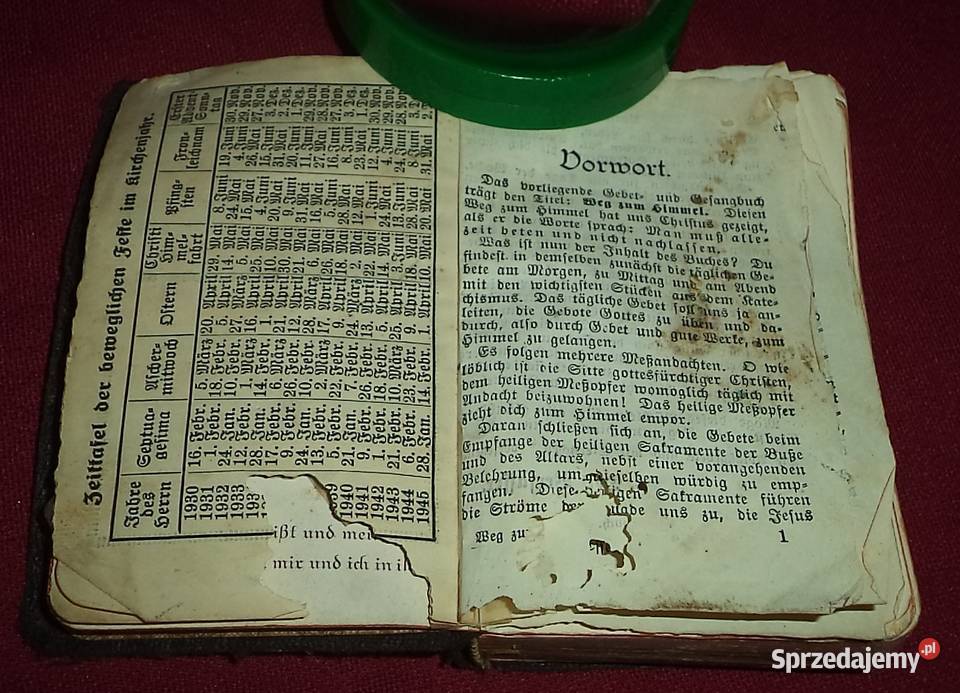 Zeittafel der beweglichen Feste im Kirchenjahr.
Jahre des Herrn Septuagesima Aschermittwoch Ostern Christi Himmelfahrt Pfingsten Fronleichnam Erster Advent-Sonntag
1930 16. Febr. 5. März 20. April 29. Mai 8. Juni 19. Juni 30. Nov.
1931 1. Febr. 18. Febr. 5. April 14. Mai 24. Mai 4. Juni 29. Nov.
1932 24. Jan. 10. Febr. 27. März 5. Mai 15. Mai 26. Mai 27. Nov.
1933 12. Febr. 1. März 16. April 25. Mai 4. Juni 15. Juni 3. Dez.
193 28. Jan. 14. Febr. 1. April 10. Mai 20. Mai 31. Mai 2. Dez.
17. Febr. 6. März 21. April 30. Mai 9. Juni 20. Juni 1. Dez.
9. Febr. 26. Febr. 12. April 21. Mai 31. Mai 11. Juni 29. Nov.
24. Jan. 10. Febr. 28. März 6. Mai 16. Mai 27. Mai 28. Nov.
13. Febr. 2. März 17. April 26. Mai 5. Juni 16. Juni 27. Nov.
9 5. Febr. 22. Febr. 9. April 18. Mai 28. Mai 8. Juni 3. Dez.
1940 21. Jan. 7. Febr. 24. März 2. Mai 12. Mai 23. Mai 1. Dez.
1941 9. Febr. 26. Febr. 13. April 22. Mai 1. Juni 12. Juni 30. Nov.
1942 1. Febr. 18. Febr. 5. April 14. Mai 24. Mai 4. Juni 29. Nov.
1943 21. Febr. 10. März 25. April 3. Juni 13. Juni 24. Juni 28. Nov.
1944 6. Febr. 23. Febr. 9. April 18. Mai 28. Mai 8. Juni 3.
1945 28. Jan. 14. Febr. 1. April 10. Mai 20. Mai 31. Mai 2.
ißt und mei
mir und ich in ih
Vorwort.
Das vorliegende Gebet- und Gesangbuch
trägt den Titel: Weg zum Himmel. Diesen
Weg zum Himmel hat uns Christus gezeigt,
als er die Worte sprach: Man muß alle-
zeit beten und nicht nachlassen.
Was ist nun der Inhalt des Buches? Du
findest in demselben zunächst die täglichen Ge-
bete am Morgen, zu Mittag und am Abend
mit den wichtigsten Stücken aus dem Kate-
chismus. Das tägliche Gebet soll uns ja an-
leiten, die Gebote Gottes zu üben und da-
durch, also durch Gebet und gute Werke, zum
Himmel zu gelangen.
Es folgen mehrere Meßandachten. O wie
löblich ist die Sitte gottesfürchtiger Christen,
dem heiligen Meßopfer womöglich täglich mit
Andacht beizuwohnen! Das heilige Meßopfer
zieht dich zum Himmel empor.
Daran schließen sich an, die Gebete beim
Empfange der heiligen Sakramente der Buße
und des Altars, nebst einer vorangehenden
Belehrung, um dieselben würdig zu emp-
fangen. Diese heiligen Sakramente führen
die Ströme der Gnade uns zu, die Jesus
Weg zu
1
Sprzedajemy.pl